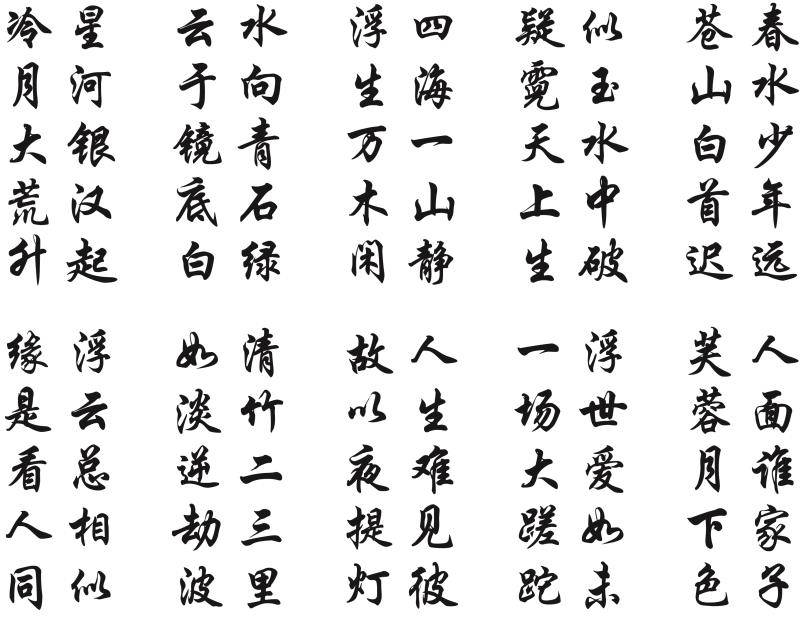 春水少年远
苍山白首迟
似玉水中破
疑霓天上生
四海一山静
浮生万木闲
水向青石绿
云于镜底白
星河银汉起
冷月大荒升
人面谁家子
芙蓉月下色
浮世爱如未
一场大蹉跎
人生难见彼
故以夜提灯
清竹二三里
如淡逆劫波
浮云总相似
缘是看人同